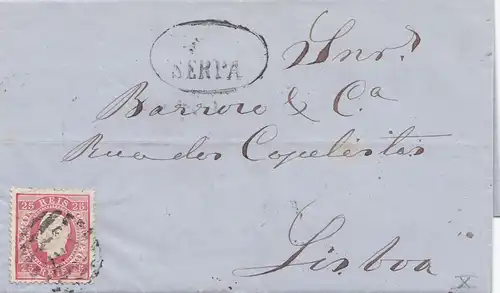 SERPA
Snr.
Barroso & Ca
Rua dos Capelistas
25 REIS 25
Lisboa
x